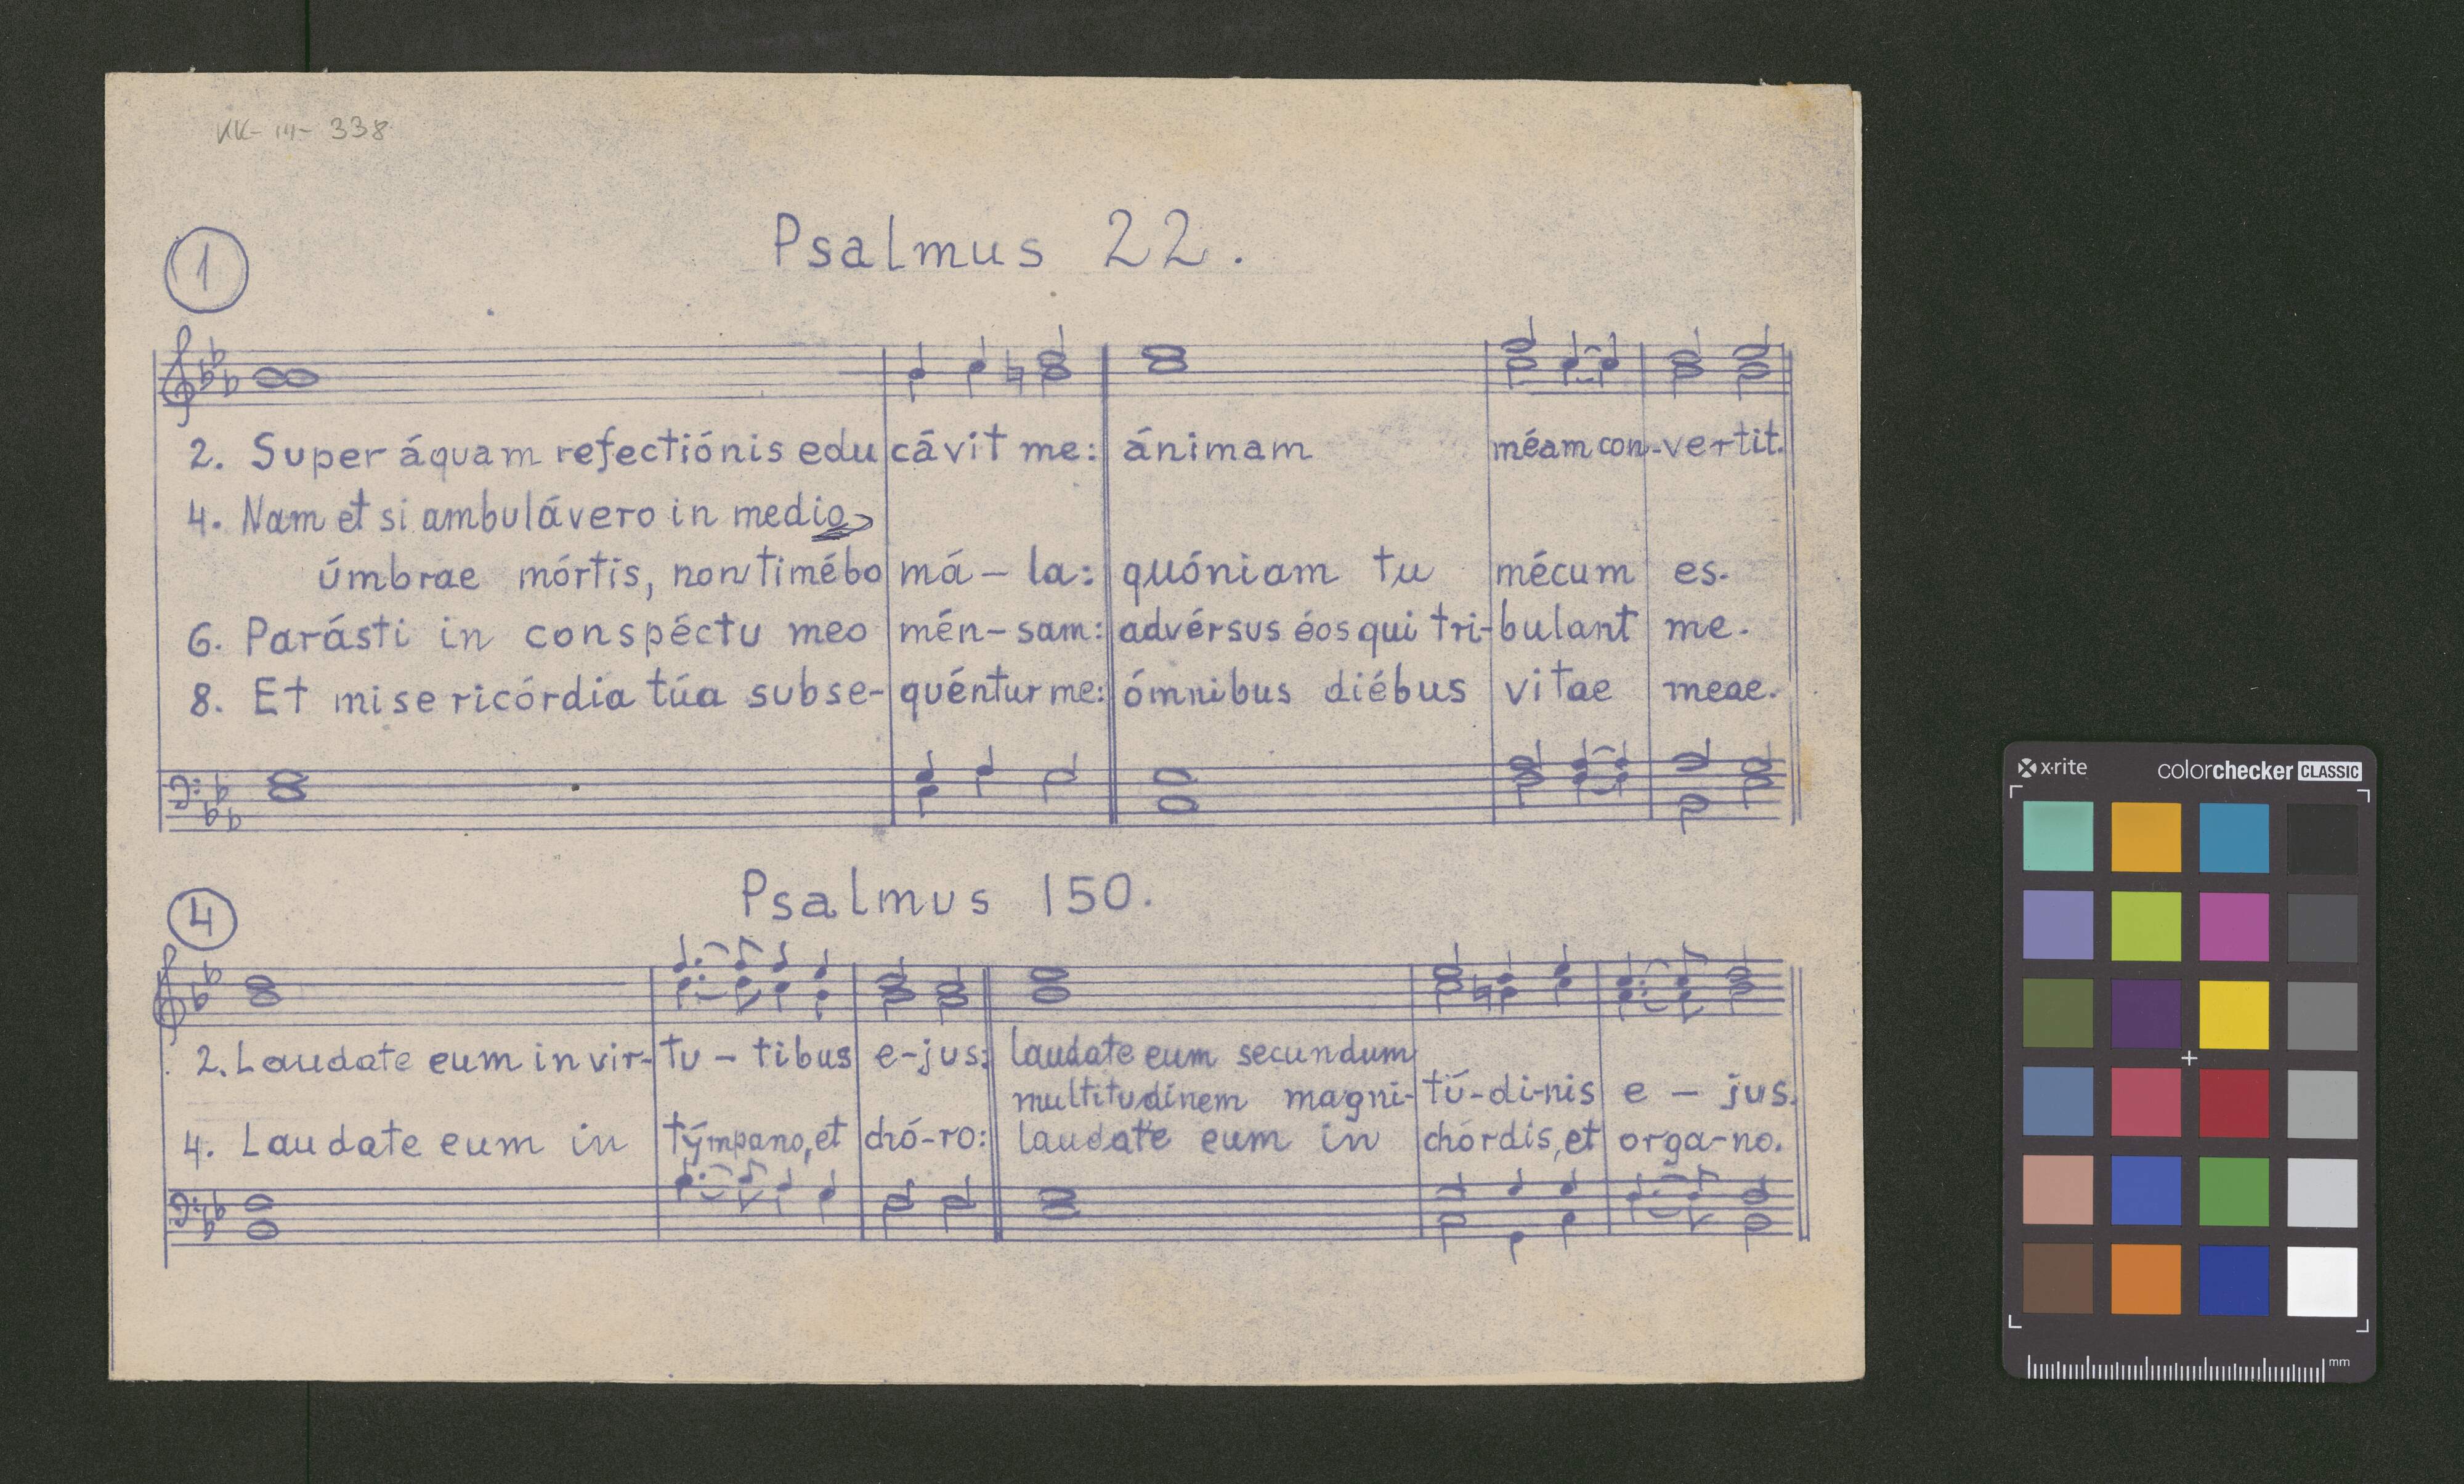 KK-14-338
Psalmus 22.
1
2. Super áquam refectiónis educávit me: ánimam méam con-vertit.
4. Nam et si ambulávero in medio
úmbrae mórtis, non timébo má-la: quóniam tu mécum es.
6. Parásti in conspéctu meo mén-sam: advérsus éos qui tri-bulant me.
8. Et misericórdia túa subse-quéntur me: ómnibus diébus vitae meae.
Psalmus 150.
4
2. Laudate eum in vir-tu-tibus e-jus: laudate eum secundum
multitudinem magni-tú-di-nis e-jus.
4. Laudate eum in týmpano, et chó-ro: laudate eum in chórdis, et orga-no.
x·rite colorchecker CLASSIC
mm